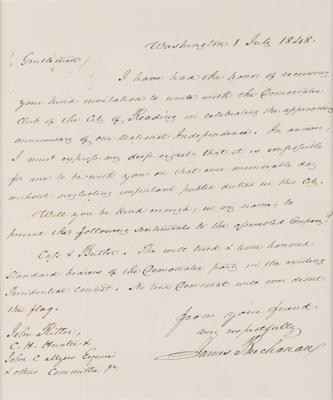 Washington 1 July 1848.
Gentlemen,
I have had the honor of receiving
your kind invitation to unite with the Democratic
Club of the City of Reading in celebrating the approaching
anniversary of our National Independence. In answer
I must express my deep regret, that it is impossible
for me to be with you on that ever memorable day
without neglecting important public duties in this City.
Will you be kind enough, in my name, to
present the following sentiments to the assembled Company?
Cass & Butler. The well tried & time honored
Standard bearers of the Democratic party in the existing
Presidential contest. No true Democrat will ever desert
the flag.
from your friend
very respectfully
James Buchanan
John Ritter,
C. H. Hunter &
John C Myers Esquires
& others Committee &c